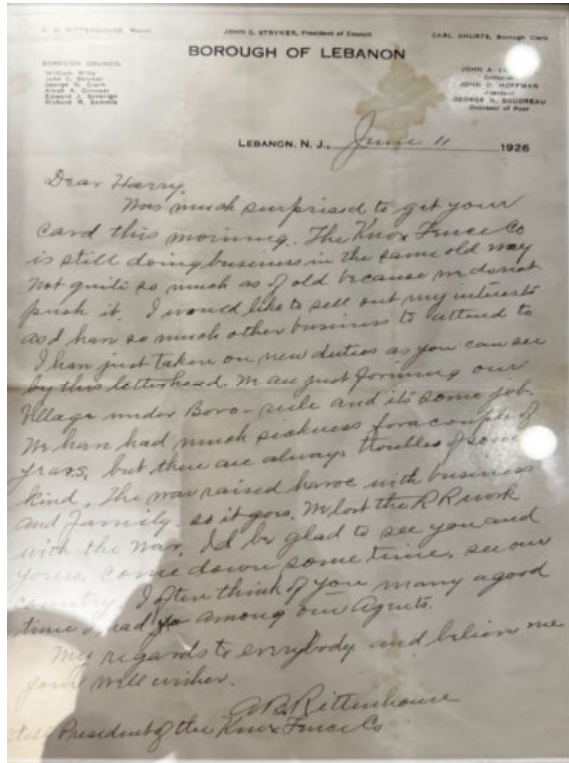 A. B. RITTENHOUSE, Mayor
JOHN C. STRYKER, President of Council
CARL SHURTS, Borough Clerk
BOROUGH OF LEBANON
BOROUGH COUNCIL
William Wille
John C. Stryker
George N. Clark
Edward J. Soverign
JOHN A.
JOHN D. HOFFMAN
GEORGE N. BOUDREAU
Overseer of Poor
LEBANON, N. J., June 11 1926
Dear Harry,
Was much surprised to get your
card this morning. The Knox Fence Co
is still doing business in the same old way
Not quite so much as of old because we do not
push it. I would like to sell out my interests
as I have so much other business to attend to
I have just taken on new duties as you can see
by this letterhead. We are just forming our
Village under Boro-rule and it's some job.
We have had much sickness for a couple of
years, but there are always troubles of some
kind. The war raised havoc with business
and family. so it goes. We lost the R R work
with the War. I'd be glad to see you and
yours. Come down some time. see our
country. I often think of you many a good
time I had among our Agents.
My regards to everybody and believe me
your well wisher.
A B Rittenhouse
Still President of the Knox Fence Co